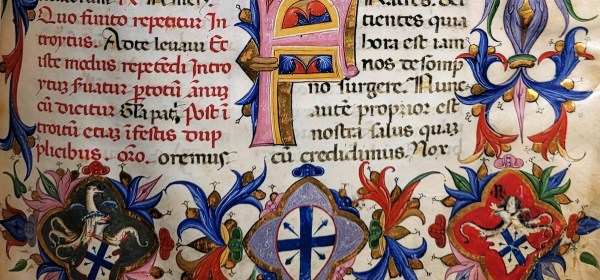 Quo finito repetitur In
troytus. Ad te levavi Et
iste modus repetēdi Intro
ytuȝ ſuatur p totū ānū
cū dicitur Gl̄a pat̄. Post ī
troitū etiaȝ ī festis dup
plicibus. Oro. oremus
F ratres.
tientes quia
hora est iam
nos de somp
no surgere. Nunc
aute proprior est
nostra salus quaȝ
cū credidimus. Nox